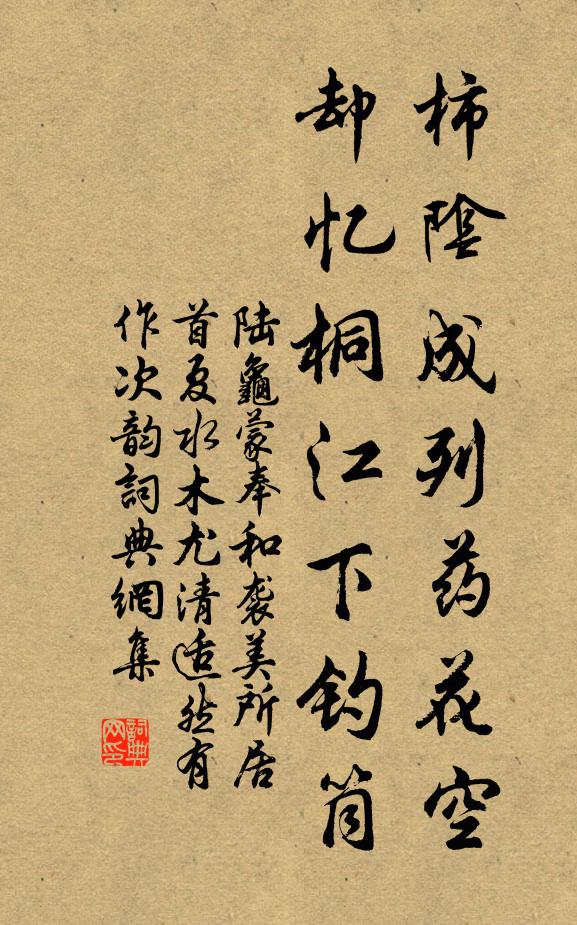 柿陰成列药花空
却忆桐江下钓筒
陆龜蒙奉和袭美所居
首夏水木尤清适然有
作次韵詞典網集
詞典網印